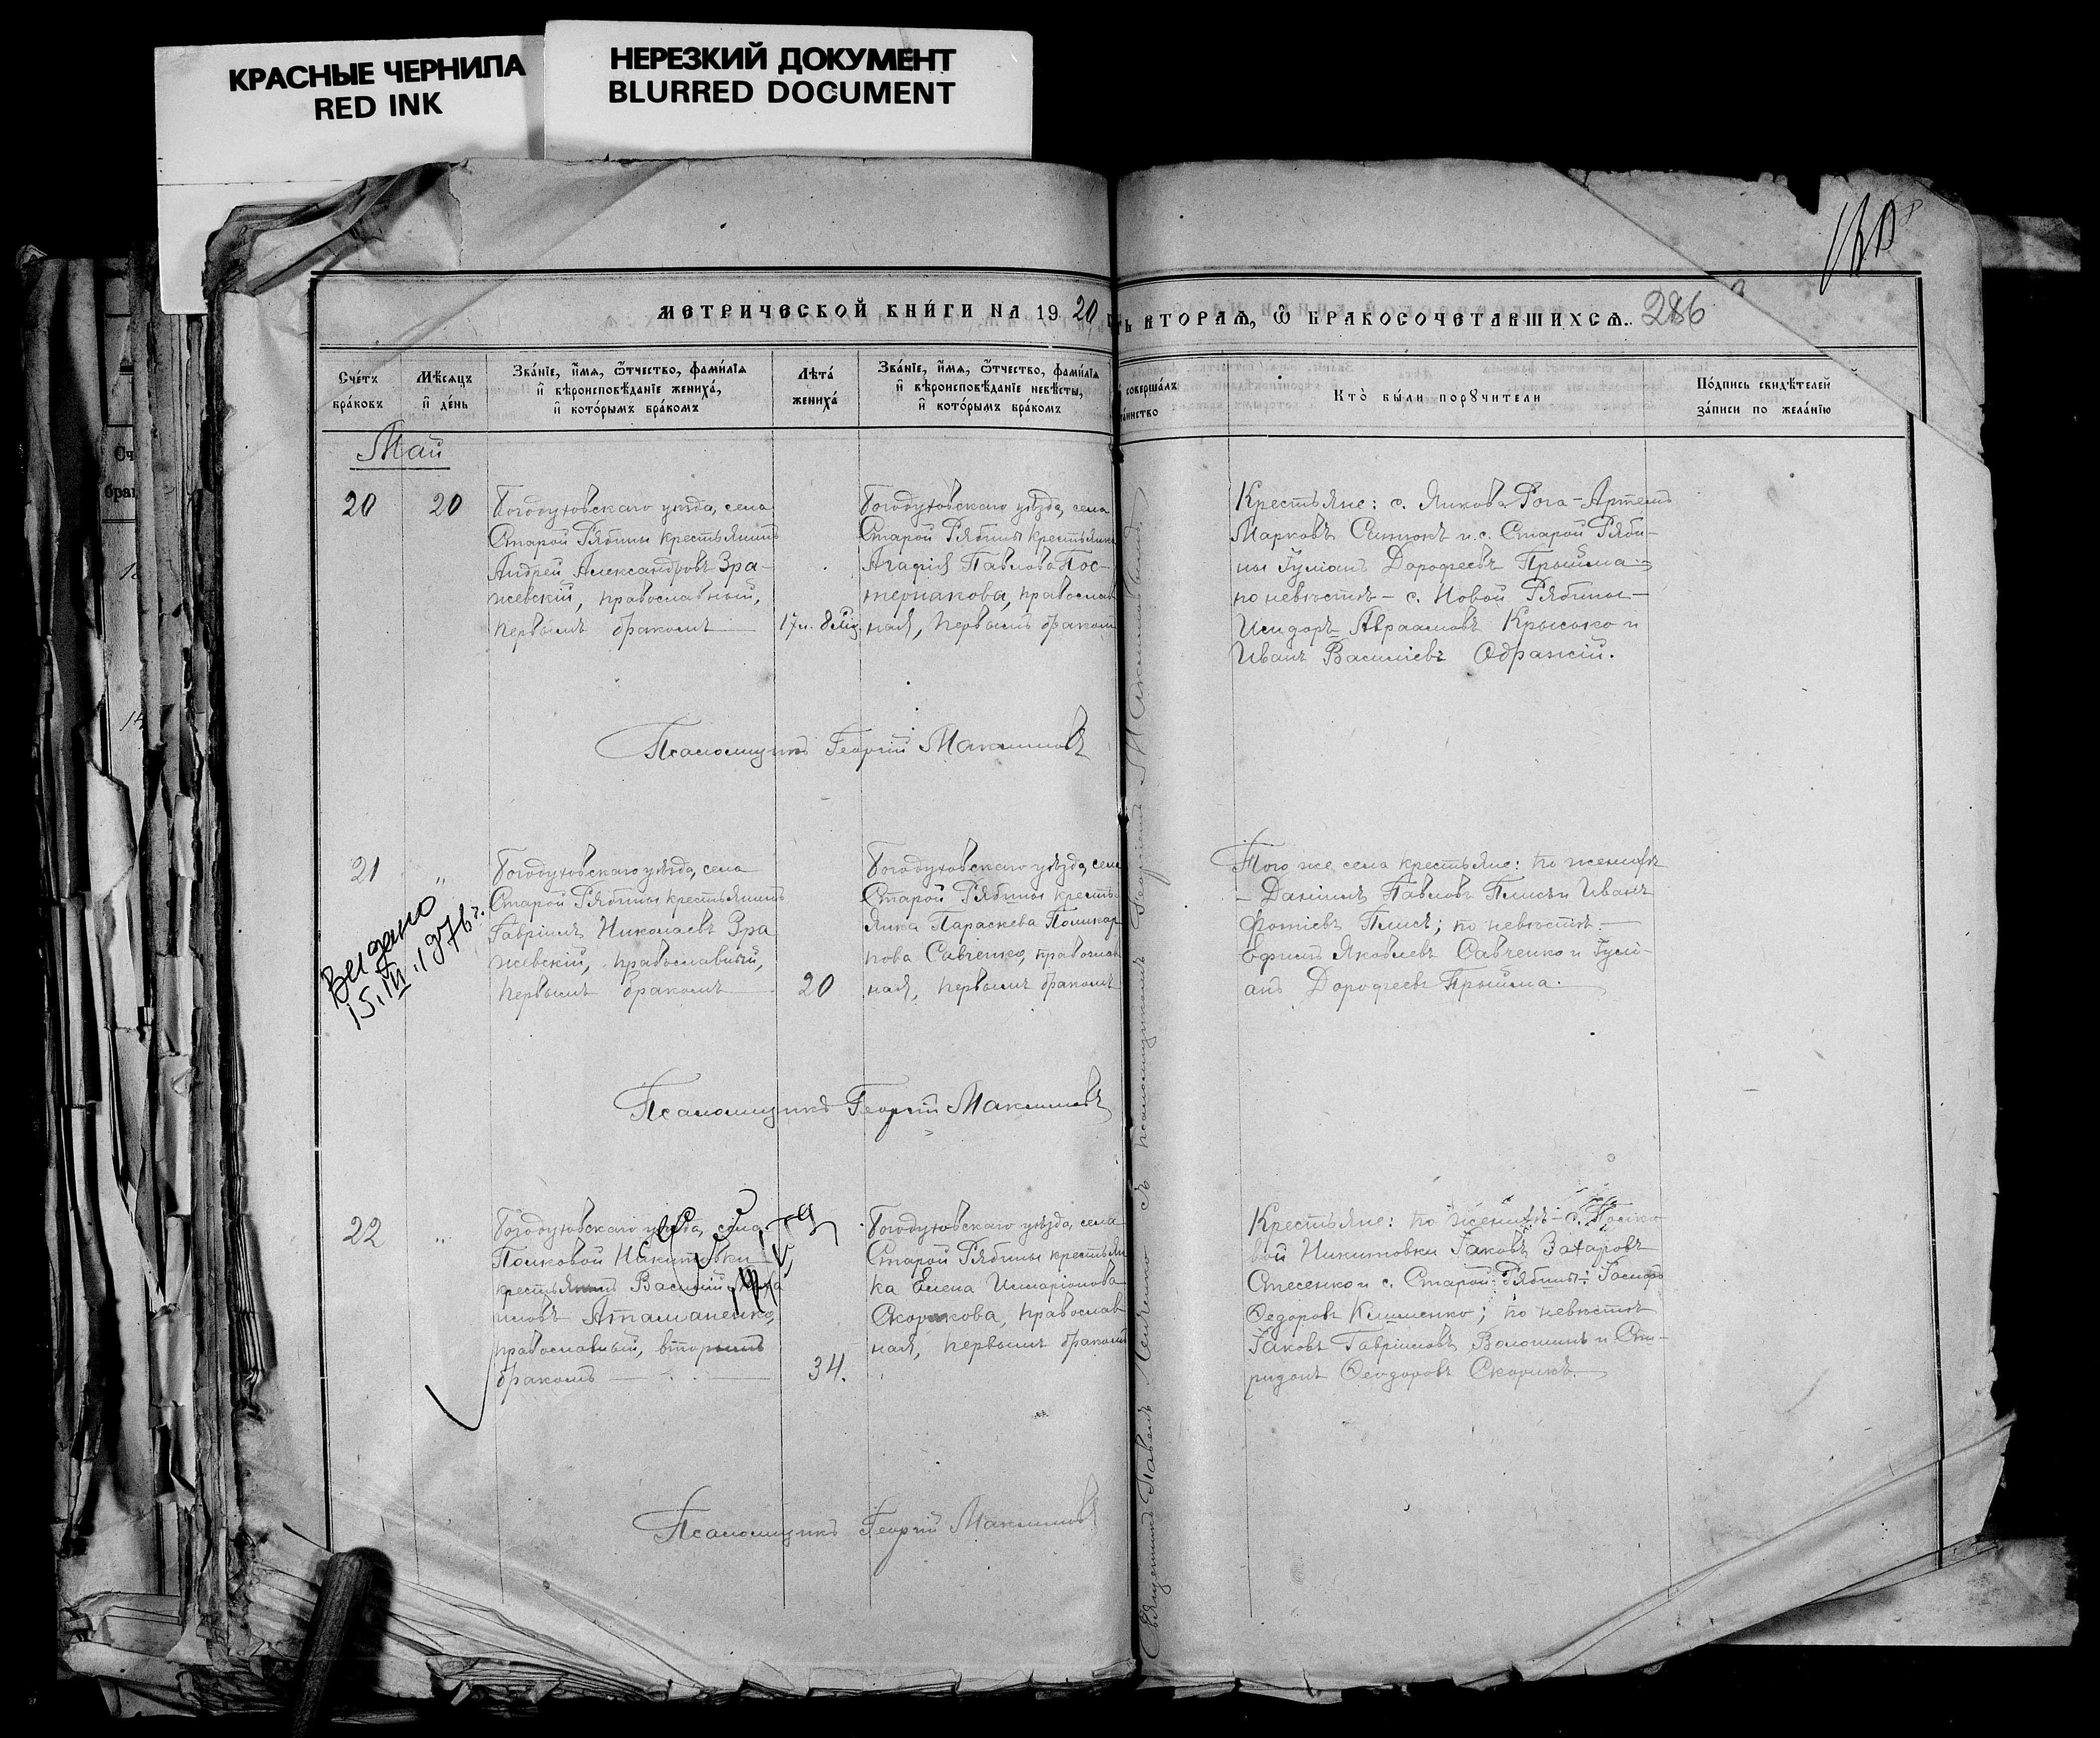 КРАСНЫЕ ЧЕРНИЛА
RED INK
НЕРЕЗКИЙ ДОКУМЕНТ
BLURRED DOCUMENT
286
МЕТРИЧЕСКОЙ КНИ́ГИ НА 1920
ВТОРАѦ, Ѡ БРАКОСОЧЕТАВШИХСѦ.
Сче́тъ бра́ковъ
Мѣ́сѧцъ и҆ де́нь
Зва́нїе, и҆́мѧ, ѻ҆́тчество, фами́лїѧ
и҆ вѣроисповѣ́данїе жениха́,
и҆ кото́рымъ бра́комъ
Лѣта̀
жениха̀
Зва́нїе, и҆́мѧ, ѻ҆́тчество, фами́лїѧ
и҆ вѣроисповѣ́данїе невѣ́сты,
и҆ кото́рымъ бра́комъ
соверша́лъ
Кто̀ бы́ли порꙋчители
По́дпись свидѣ́телей
за́писи по жела́нїю
Май
20
20
Богодуховскаго уѣзда, села
Старой Рябины крестьянинъ
Андрей Александровъ Зра-
жевскій, православный,
первымъ бракомъ
17 л. 8 м.
Богодуховскаго уѣзда, села
Старой Рябины крестьянка
Агафія Павлова Пос-
тернакова, православ
ная, первымъ бракомъ
Крестьяне: с. Янкова Рога - Артемъ
Марковъ и с. Старой Ряби-
ны Іуліанъ Дорофеевъ Прыйма
по невѣстѣ - с. Новой Рябины -
Исидоръ Авраамовъ Крысько и
Иванъ Василіевъ Одражій.
Псаломщикъ Георгій Максимовъ
21
"
Богодуховскаго уѣзда, села
Старой Рябины крестьянинъ
Гавріилъ Николаевъ Зра
жевскій, православный,
первымъ бракомъ
20
Богодуховскаго уѣзда, села
Старой Рябины кресть
янка Параскева Поликар
пова Савченко, православ
ная, первымъ бракомъ
Того же села крестьяне: по женихѣ
- Даніилъ Павловъ Плисъ и Иванъ
Фотіевъ Плисъ; по невѣстѣ -
Ефимъ Яковлевъ Савченко и Іулі-
анъ Дорофеевъ Прыйма.
Выдано
15.III.1976 г.
Псаломщикъ Георгій Максимовъ
22
"
Богодуховскаго уѣзда, села
Полковой Никитовки
крестьянинъ Василій
Атаманенко,
православный, вторымъ
бракомъ
34.
Богодуховскаго уѣзда, села
Старой Рябины крестьян
ка Елена Иларіонова
Скорикова, православ
ная, первымъ бракомъ
Крестьяне: по женихѣ - с. Полко
вой Никитовки Іаковъ Захаровъ
Стесенко и с. Старой Рябины:
Ѳедоровъ Клименко; по невѣстѣ
Іаковъ Гавріиловъ Волошинъ и Спи-
ридонъ Ѳеодоровъ Скорикъ.
Псаломщикъ Георгій Максимовъ
Священникъ Павелъ съ псаломщикомъ Георгіемъ Максимовымъ